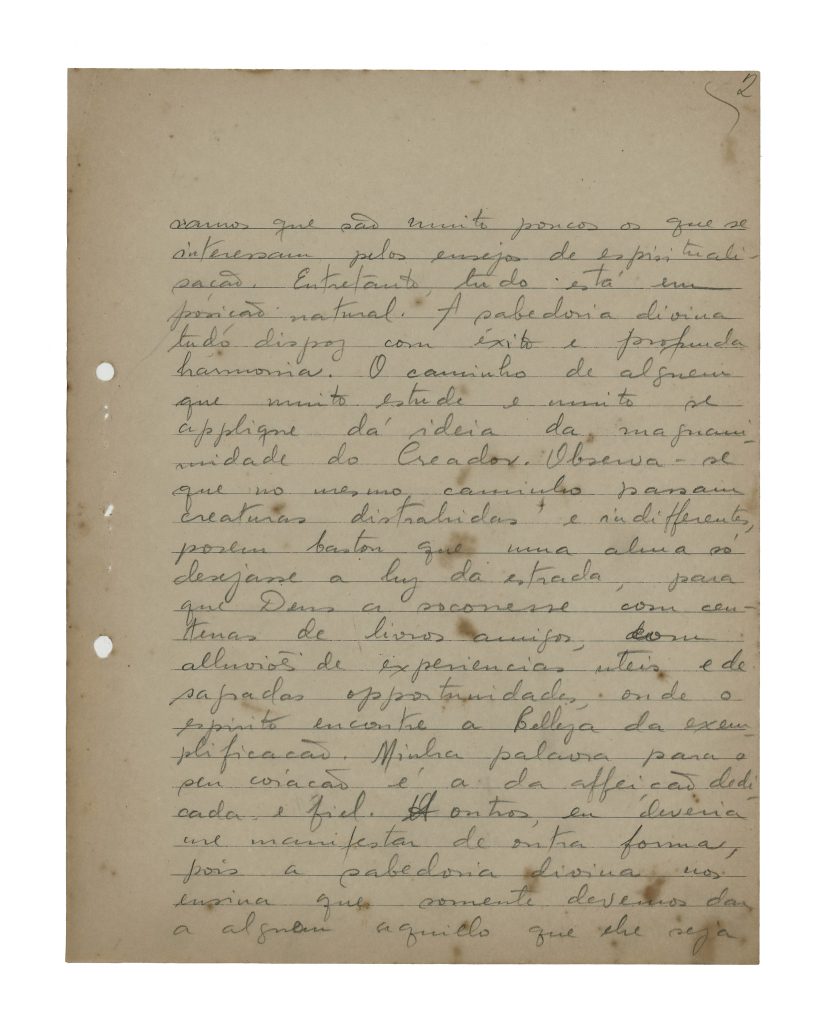 2
vamos que são muito poucos os que se
interessam pelos ensejos de espirituali-
sação. Entretanto, tudo está em
posição natural. A sabedoria divina
tudo dispoz com éxito e profunda
harmonia. O caminho de alguem
que muito estude e muito se
applique dá ideia da magnani-
midade do Creador. Observa-se
que no mesmo caminho passam
creaturas distrahidas e indifferentes,
porem bastou que uma alma só
desejasse a luz da estrada, para
que Deus a soccoresse com cen-
tenas de livros amigos, com
alluviões de experiencias uteis e de
sagradas opportunidades, onde o
espirito encontre a Belleza da exem-
plificacão. Minha palavra para o
seu coração é a da affeicão dedi-
cada e fiel. A outros, eu deveria
me manifestar de outra forma,
pois a sabedoria divina nos
ensina que somente devemos dar
a alguem aquillo que elle seja